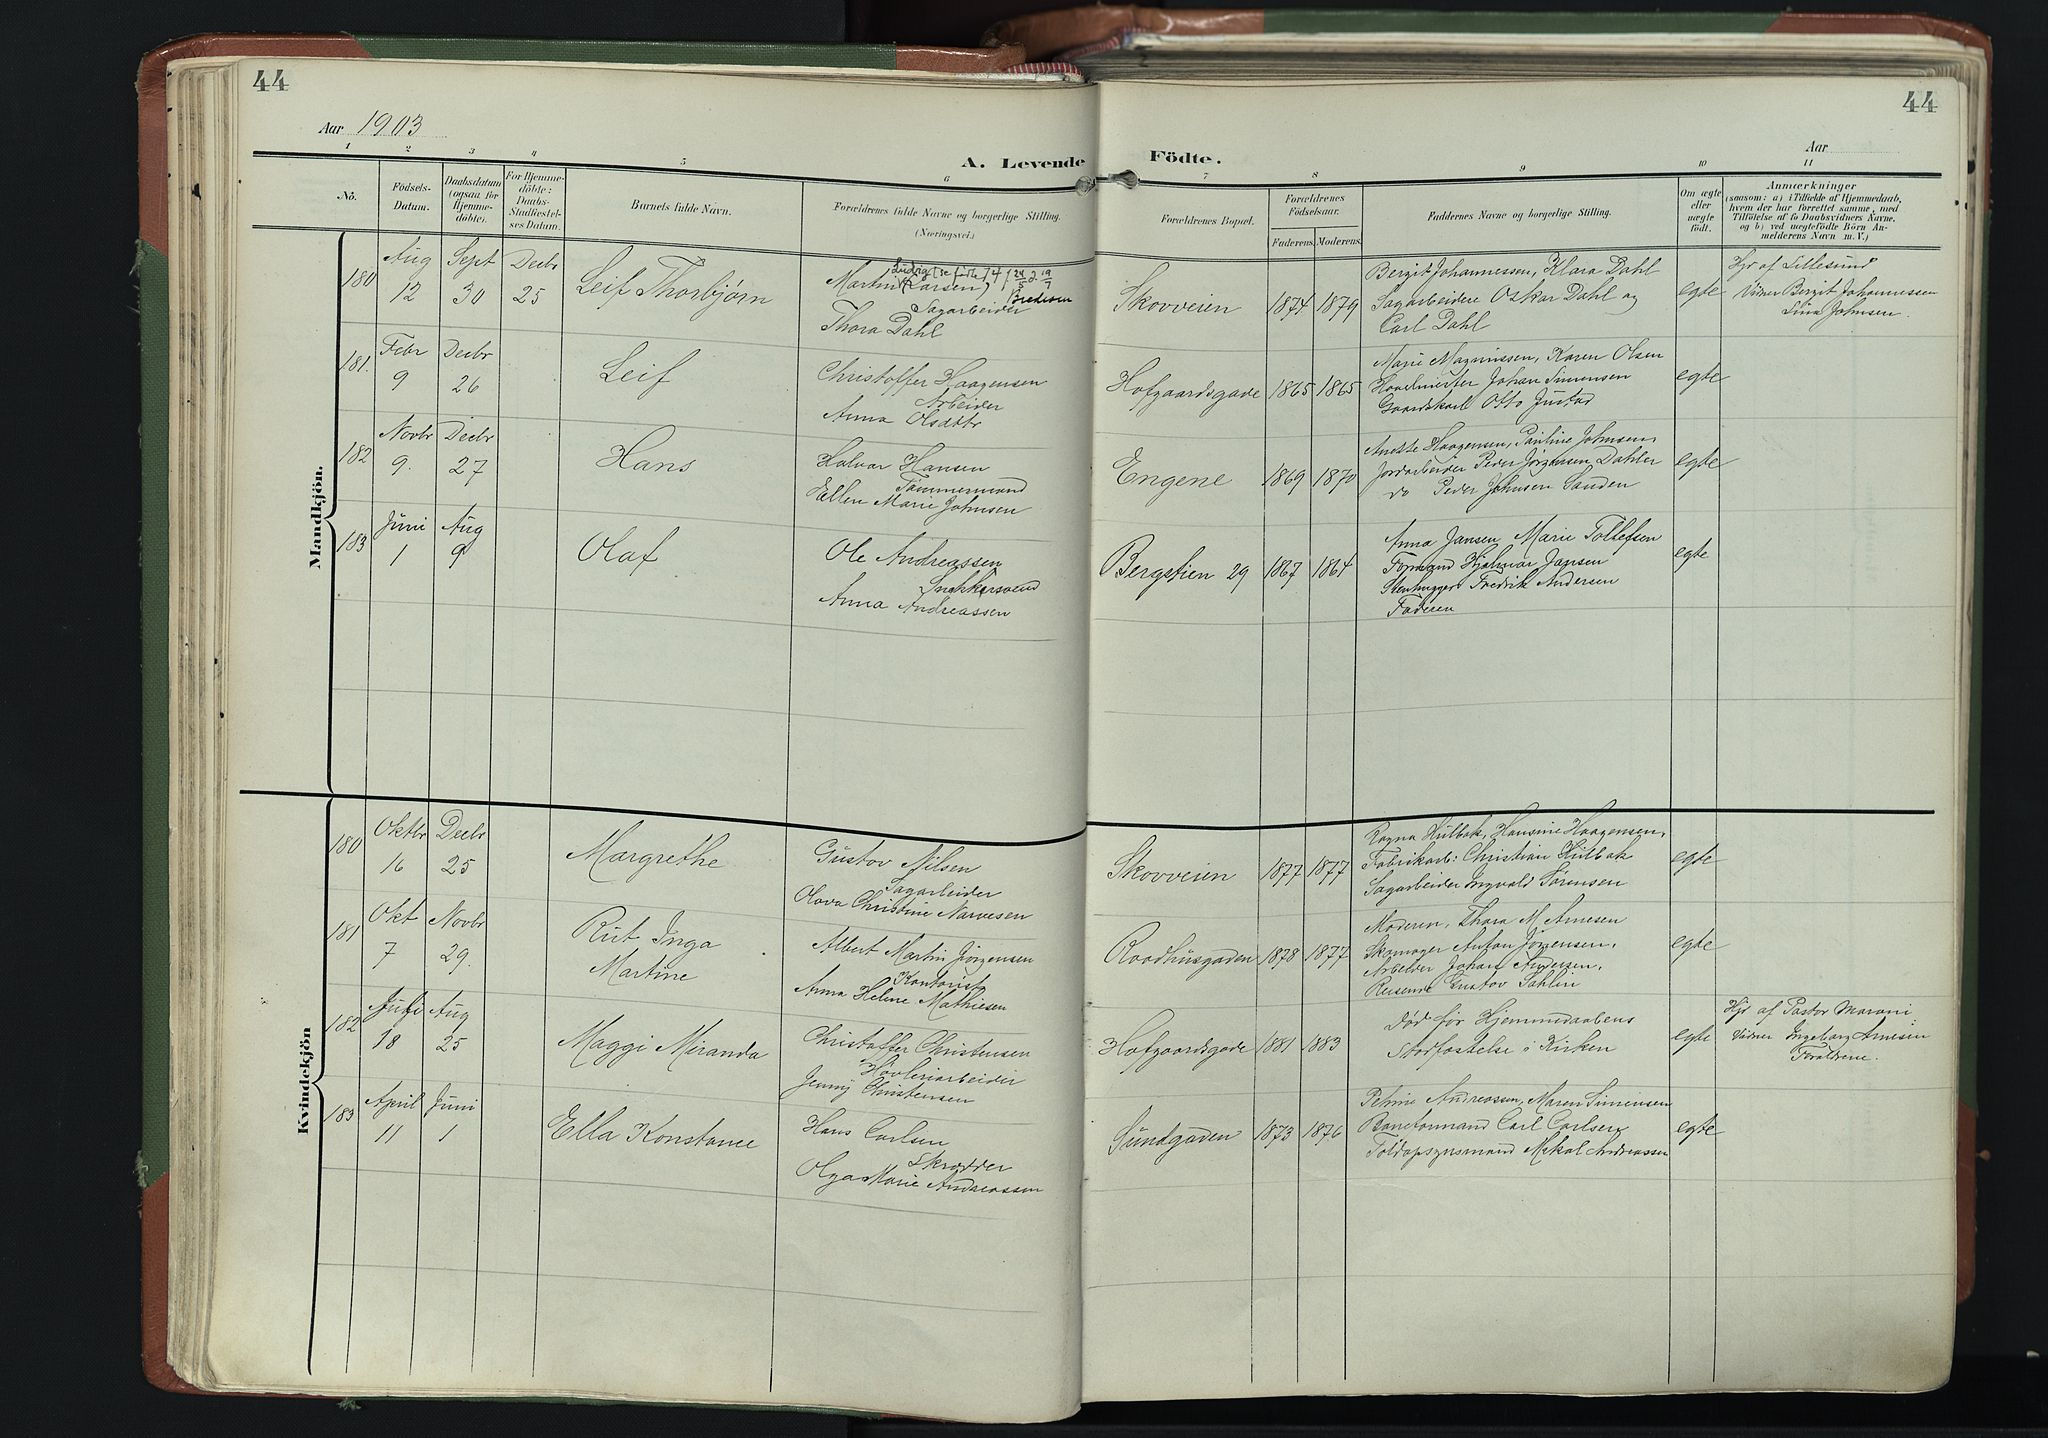 44
44
Aar 1903
Aar
A. Levende Födte.
1 2 3 4 5 6 7 8 9 10 11
No.
Födsels-
Datum.
Daabsdatum
(ogsaa for
Hjemme-
döbte).
For Hjemme-
döbte:
Daabs-
Stadfæstel-
ses Datum.
Barnets fulde Navn.
Forældrenes fulde Navne og borgerlige Stilling.
(Næringsvei.)
Forældrenes Bopæl.
Forældrenes
Födselsaar.
Faderens. Moderens.
Faddernes Navne og borgerlige Stilling.
Om ægte
eller
uægte
födt.
Anmærkninger
(saasom: a) i Tilfælde af Hjemmedaab,
hvem der har forrettet samme, med
Tilföielse af to Daabsvidners Navne,
og b) ved uægtefödte Börn An-
melderens Navn m. V.)
Mandkjön.
180
Aug
12
Sept
30
Decbr
25
Leif Thorbjørn
Ludvig (se födte 14/
Martin (Larsen)
Bredesen
Sagarbeider
Thora Dahl
Skovveien
1874 1879
Bergit Johannessen, Klara Dahl
Sagarbeidere Oskar Dahl og
Carl Dahl
egte
Hjd af Lillesund
Vidner Bergit Johannessen
Lina Johnsen.
181.
Febr
9
Decbr
26
Leif
Christoffer Haagensen
Arbeider
Anna Olsdttr
Hofgaardsgade
1865 1865
Marie Magnussen, Karen Olsen
Hovelmester Johan Simensen
Gaardskarl Otto Justad
egte
182
Novbr
9.
Decbr
27
Hans
Halvor Hansen
Tømmermand
Ellen Marie Johnsen
Engene
1869 1870
Anette Haagensen, Pauline Johnsen,
Jordarbeider Peder Jørgensen Dahler
do Peder Johnsen Sanden
egte
183
Juni
1
Aug
9
Olaf
Ole Andreassen
Snekkersvend
Anna Andreassen
Bergstien 29
1867 1864
Anna Jansen Marie Tollefsen
Formand Hjalmar Jansen
Stenhugger Fredrik Andersen
Faderen
egte
Kvindekjön
180
Oktbr
16
Decbr
25
Margrethe
Gustov Nilsen
Sagarbeider
Olava Christine Narvesen
Skovveien
1877 1877
Ragna Hulbak, Hansine Haagensen,
Fabrikarb: Christian Hulbak
Sagarbeider Ingvald Sørensen
egte
181
Okt
7
Novbr
29.
Rut Inga
Martine
Albert Martin Jørgensen
Kontorist
Anna Helene Mathiesen
Raadhusgaden
1878 1877
Moderen, Thora M. Arnesen
Skomager Anton Jørgensen,
Arbeider Johan Andersen,
Reisende Gustav Sahlin
egte
182
Juli
18
Aug
25
Maggi Miranda
Christoffer Christensen
Høvleriarbeider
Jenny Christensen
Hofgaardsgade
1881 1883
Død før Hjemmedaabens
Stadfæstelse i Kirken
egte
Hjd af Pastor Maroni
Vidner Ingeborg Arnesen
Forældrene.
183
April
11
Juni
1
Ella Konstance
Hans Carlsen
Skrædder
Olga Marie Andreassen
Sundgaden
1873 1876
Petrine Andreassen, Maren Simensen
Baneformand Carl Carlsen
Toldopsynsmand Mikal Andreassen
egte